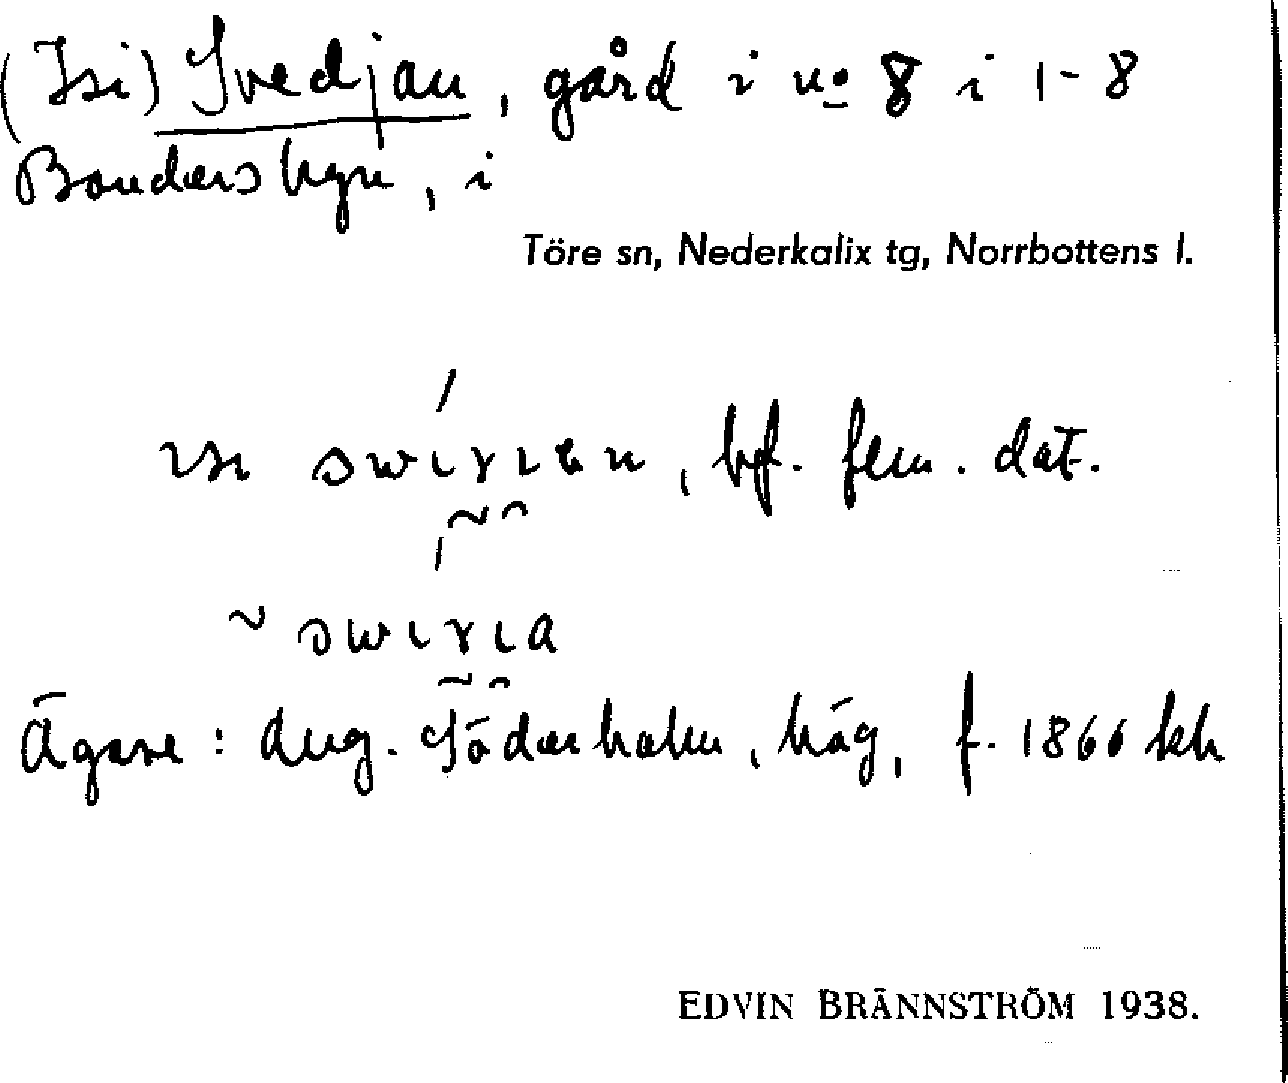 (Isi) Svedjan, gård i no 8 i 1-8
Bondersbyn, i
Töre sn, Nederkalix tg, Norrbottens l.
bf. fem. dat.
Ägare: Aug. Söderholm, häg, f. 1866 hh
EDVIN BRÄNNSTRÖM 1938.